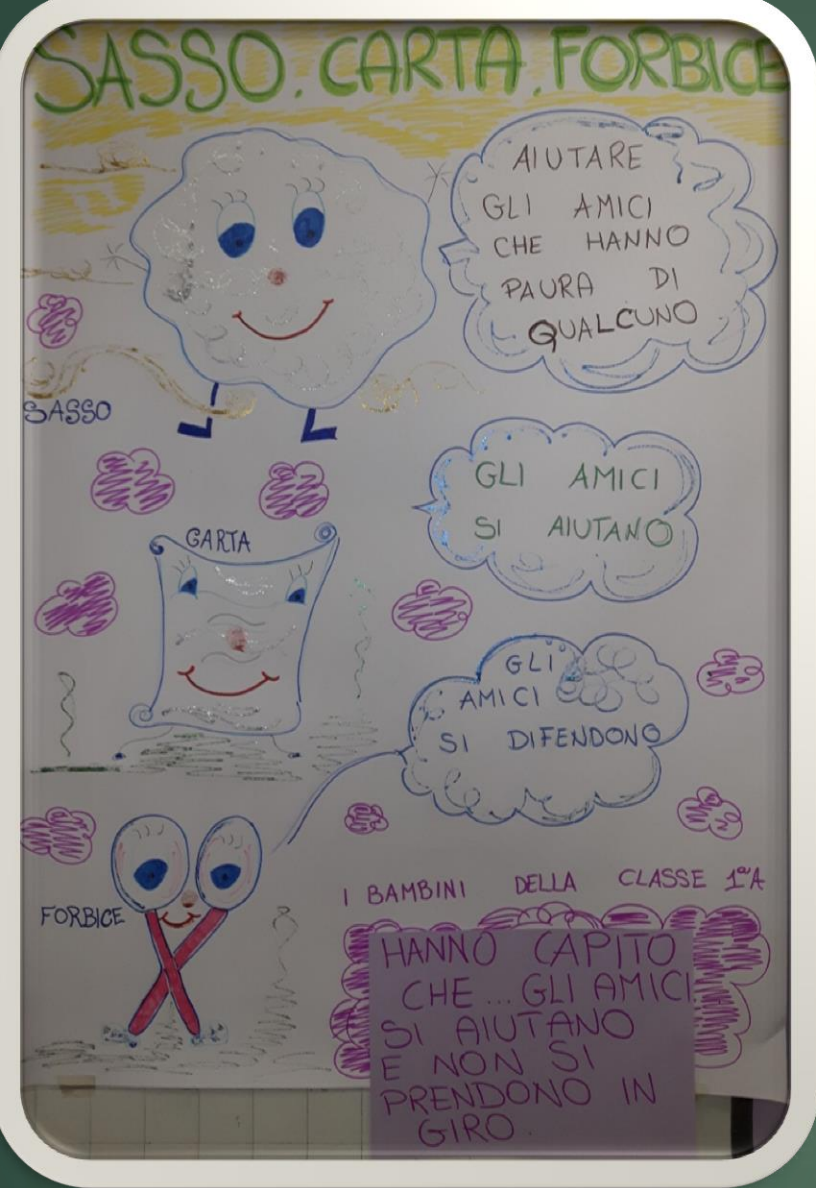 SASSO. CARTA. FORBICE
AIUTARE
GLI AMICI
CHE HANNO
PAURA DI
QUALCUNO
SASSO
GLI AMICI
SI AIUTANO
CARTA
GLI
AMICI
SI DIFENDONO
FORBICE
I BAMBINI DELLA CLASSE 1ªA
HANNO CAPITO
CHE... GLI AMICI
SI AIUTANO
E NON SI
PRENDONO IN
GIRO.